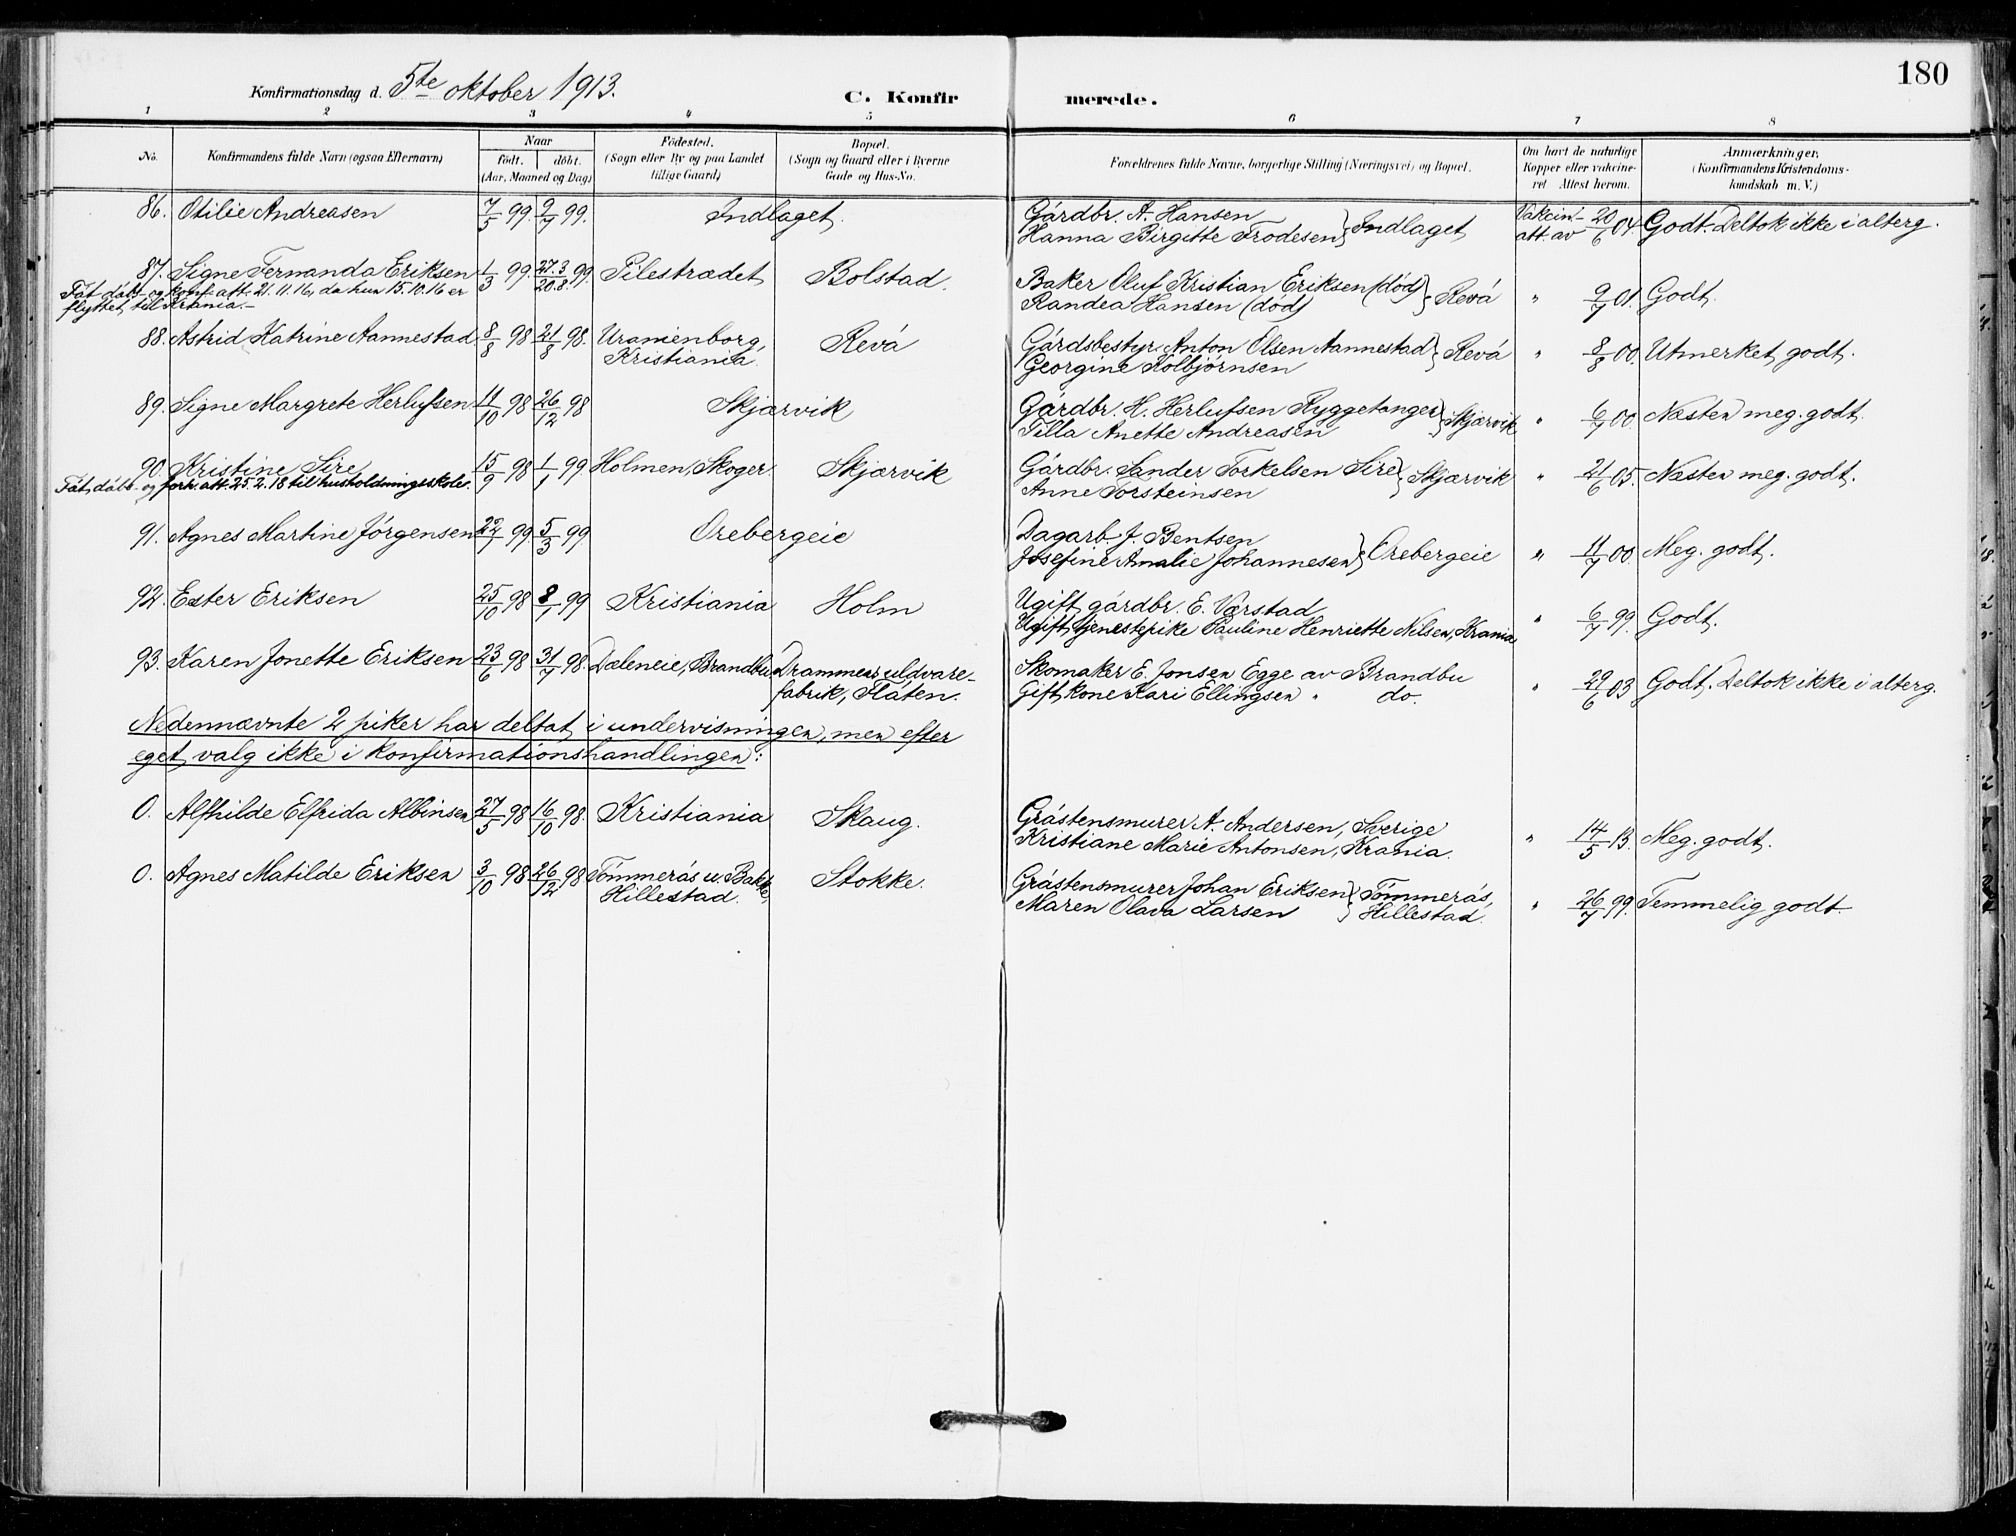 180
Konfirmationsdag d. 5te oktober 1913.
C. Konfirmerede.
1 2 3 4 5 6 7 8
No.
Konfirmandens fulde Navn (ogsaa Efternavn)
Naar
født. døbt.
(Aar, Maaned og Dag)
Födested.
(Sogn eller By og paa Landet
tillige Gaard)
Bopæl.
(Sogn og Gaard eller i Byerne
Gade og Hus-No.
Forældrenes fulde Navne, borgerlige Stilling (Næringsvei) og Bopæl.
Om havt de naturlige
Kopper eller vakcine-
ret Attest herom.
Anmærkninger.
(Konfirmandens Kristendoms-
kundskab m. V.)
86. Otilie Andreasen 7/5 99. 9/7 99. Indlaget. Gárdbr. A. Hansen } Indlaget Vakcin.- 20/6 04. Godt. Deltok ikke i alterg.
Hanna Birgitte Frodesen att. av
87. Signe Fernanda Eriksen 1/3 99. 27.3/20.8. 99. Pilestrædet Bolstad. Baker Oluf Kristian Eriksen (död) } Revá " 9/7 01. Godt.
Fåt dåbs- og konf. att. 21.11.16, da hun 15.10.16 er Randea Hansen (död)
flyttet til Krania.-
88. Astrid Katrine Aannestad 8/8 98 21/8 98. Uranienborg, Revá Gárdsbestyr. Anton Olsen Aannestad } Revá " 8/8 00. Utmerket godt.
Kristiania. Georgine Kolbjørnsen
89. Signe Margrete Herlufsen 11/10 98 26/12 98 Skjærvik Gárdbr. H. Herlufsen Ryggetangen } Skjærvik " 6/7 00. Næsten meg. godt.
Tilla Anette Andreasen
90. Kristine Sire 15/9 98 1/1 99 Holmen, Skoger Skjærvik Gárdbr. Sander Torkelsen Sire } Skjærvik " 21/6 05. Næsten meg. godt.
Fåt dåbs- og att. 25.2.18 til husholdningsskole. Anne Torsteinsen
91. Agnes Martine Jörgensen 22/1 99. 5/3 99. Orebergeie Dagarb. J. Bentsen } Orebergeie " 11/7 00. Meg. godt.
Josefine Amalie Johannesen
92. Ester Eriksen 25/10 98 8/1 99 Kristiania Holm Ugift gárdbr. E. Várstad " 6/7 99. Godt.
Ugift tjenestepike Pauline Henriette Nilsen, Krania
93. Karen Jonette Eriksen 23/6 98 31/7 98. Dæleneie, Brandbu Drammens uldvare- Skomaker E. Jonsen Egge av Brandbu " 29/6 03 Godt. Deltok ikke i alterg.
fabrik, Flåten. Gift kone Kari Ellingsen " do.
Nedennævnte 2 piker har deltat i undervisningen, men efter
eget valg ikke i konfirmationshandlingen:
0. Alfhilde Elfrida Albinsen 27/5 98 16/10 98. Kristiania Skaug. Grástensmurer A. Andersen, Sverige " 14/5 13. Meg. godt.
Kristiane Marie Antonsen, Krania.
0. Agnes Matilde Eriksen 3/10 98 26/12 98 Tömmerás u. Bakke, Stokke. Grástensmurer Johan Eriksen } Tömmerás, " 26/7 99. Temmelig godt.
Hillestad. Maren Olava Larsen Hillestad.